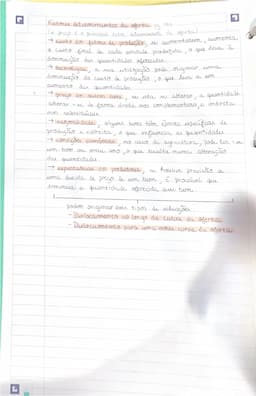 Fatores determinantes da oferta
(o preço é o principal fator determinante da oferta)
→ custo dos fatores de produção, se aumentarem, aumenta
o custo final de cada unidade produzida, o que leva à
diminuição das quantidades oferecidas
→ tecnologia, a sua utilização pode originar uma
diminuição do custo de produção, o que leva a um
aumento das quantidades
→ preço dos outros bens, se este se alterar, a quantidade
altera-se de forma direta nos complementares e indireta
nos substitutos
→ sazonalidade, alguns bens têm épocas específicas de
produção e colheita, o que influencia as quantidades
→ condições, no caso da agricultura, pode ter-se
um bom ou mau ano, o que resulta numa alteração
das quantidades
→ expectativas dos produtores, se houver previsão de
uma subida do preço de um bem, é provável que
a quantidade oferecida desse bem
podem originar dois tipos de situações
- Deslocamento ao longo da curva da oferta
- Deslocamento para uma outra curva da oferta